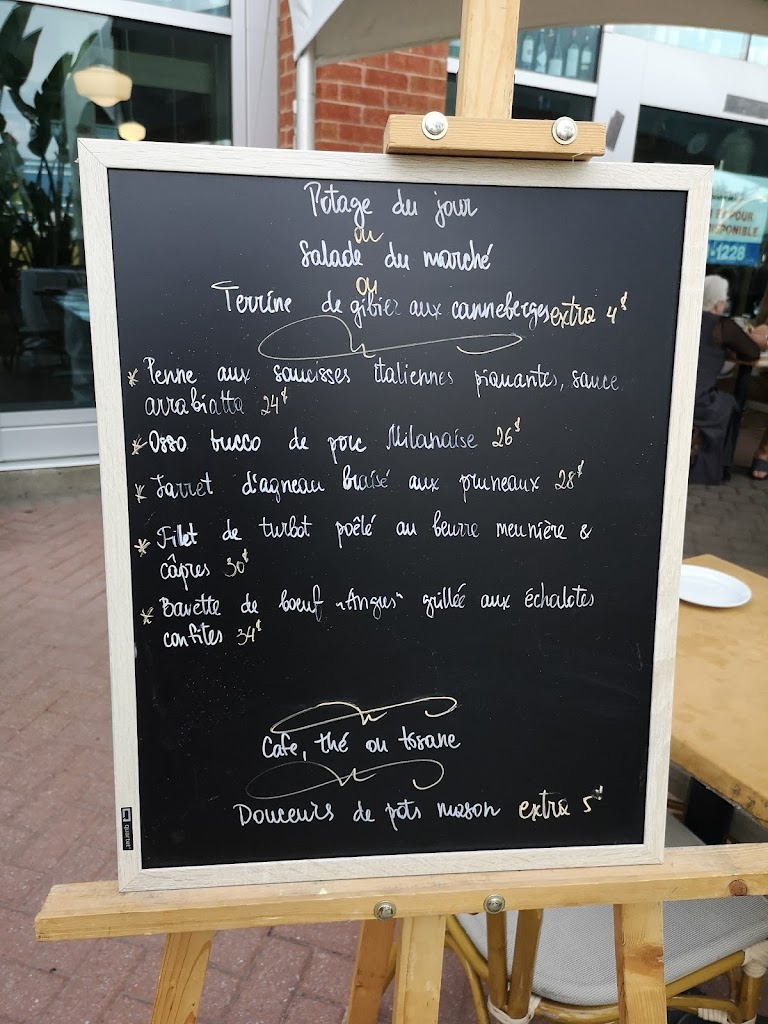 Potage du jour
ou
Salade du marché
ou
Terrine de gibier aux canneberges extra 4$
* Penne aux saucisses italiennes piquantes, sauce
arrabiatta 24$
* Osso bucco de porc Milanaise 26$
* Jarret d'agneau braisé aux pruneaux 28$
* Filet de turbot poêlé au beurre meunière &
câpres 30$
* Bavette de boeuf "Angus" grillée aux échalotes
confites 34$
Cafe, thé ou tisane
Douceurs de pots maison extra 5$
quartet
POUR
1228